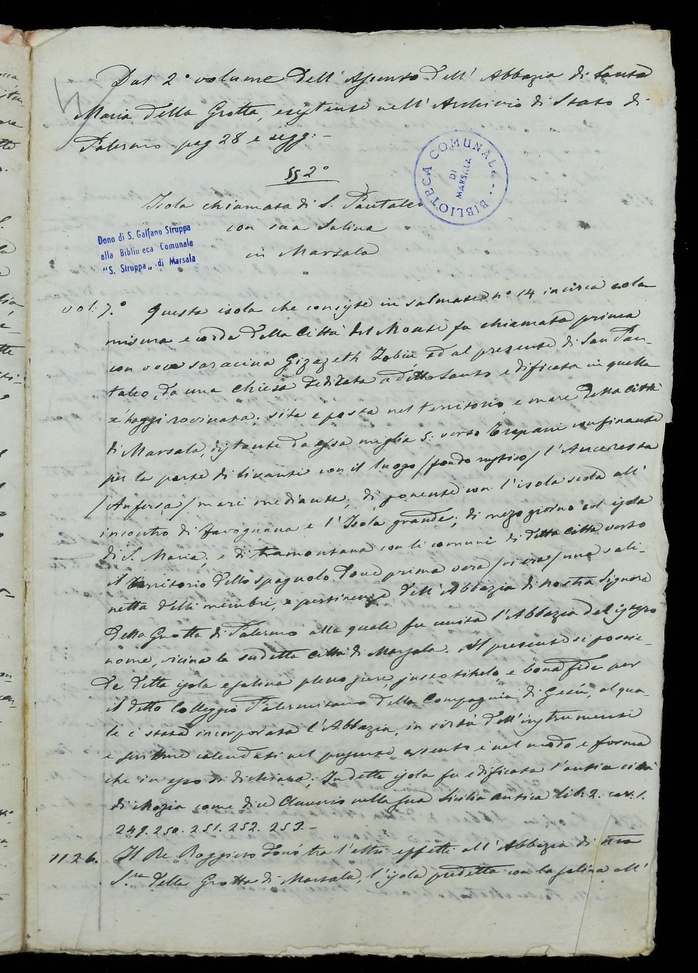 Dal 2° volume dell'Assento dell'Abbazia di Santa
Maria della Grotta, esistente nell'Archivio di Stato di
Palermo pag 28 e segg:-
§§ 2°
Isola chiamata di S. Pantaleo
con sua Salina
in Marsala
BIBLIOTECA COMUNALE
DI
MARSALA
Dono di S. Galfano Struppa
alla Biblioteca Comunale
"S. Struppa" di Marsala
vol: 7.° Questa isola che consiste in salmate n° 14 incirca colla
misura e corda della Città del Monte fu chiamata prima
con voce saracina Gizazeth ad al presente di San Pan-
taleo, da una Chiesa dedicata a detto Santo e dificata in quella
e hoggi rovinata; sita e posta nel territorio e mare della Città
di Marsala, distante da essa miglia 5: verso Trapani confinante
per la parte di livante con il luogo /fondo rustico/ l'
/Anfersa/ mari mediante, di ponente con l'isola scola all'
incontro di Favognana e l'Isola grande; di mezogiorno col isola
di S. Maria, e di tramontana con li comuni di detta Città verso
il territorio dello spagnuolo dove prima vera /vi era/ una sali-
netta delli membre, e pertinenze dell'Abbazia di Nostra Signora
della Grotta di Palermo alla quale fu unita l'Abbazia del istesso
nome, vicina la sudetta Città di Marsala. Al presente si possie-
de detta isola e salina pleno jure, justo titolo e bona fide per
il detto Colleggio Palermitano della Compagnia di Giesù, al qua-
le è stata incorporata l'Abbazia, in virtù dell'instrumenti
e scritture calendati nel presente assento e nel modo e forma
che in esso si dichiara; In detta isola fu edificata l'antica città
di Mozia come dice Cluverio nella sua Sicilia antica lib. 2. car. s.
249. 250. 251. 252. 253.-
1126. Il Re Roggiero donò tra l'altri effetti all'Abbazia di
S.ra della Grotta di Marsala, l'isola predetta con la salina all'